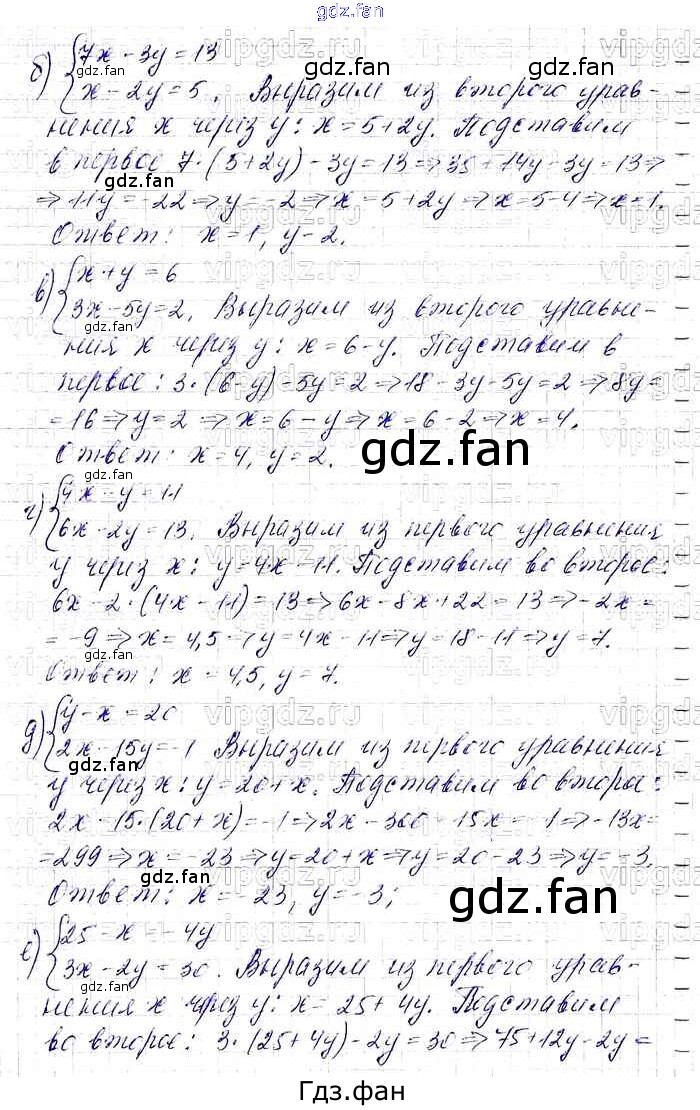 gdz.fan
б) {7x - 3y = 13
gdz.fan
{x - 2y = 5. Выразим из второго урав-
gdz.fan
нения x через y: x = 5 + 2y. Подставим
в первое 7·(5+2y) - 3y = 13 ⇒ 35 + 14y - 3y = 13 ⇒
gdz.fan
⇒ 11y = -22 ⇒ y = -2 ⇒ x = 5 + 2y ⇒ x = 5 - 4 ⇒ x = 1.
Ответ: x = 1, y - 2.
в) {x + y = 6
{3x - 5y = 2. Выразим из второго уравне-
gdz.fan
ния x через y: x = 6 - y. Подставим в
первое: 3·(6-y) - 5y = 2 ⇒ 18 - 3y - 5y = 2 ⇒ 8y =
= 16 ⇒ y = 2 ⇒ x = 6 - y ⇒ x = 6 - 2 ⇒ x = 4.
gdz.fan
Ответ: x = 4, y = 2.
gdz.fan
г) {4x - y = 11
{6x - 2y = 13. Выразим из первого уравнения
gdz.fan
y через x: y = 4x - 11. Подставим во второе:
6x - 2·(4x - 11) = 13 ⇒ 6x - 8x + 22 = 13 ⇒ -2x =
= -9 ⇒ x = 4,5 ⇒ y = 4x - 11 ⇒ y = 18 - 11 ⇒ y = 7.
gdz.fan
Ответ: x = 4,5, y = 7.
д) {y - x = 20
{2x - 15y = -1 Выразим из первого уравнения
gdz.fan
y через x: y = 20 + x. Подставим во второе:
2x - 15·(20 + x) = -1 ⇒ 2x - 300 - 15x = -1 ⇒ -13x =
= 299 ⇒ x = -23 ⇒ y = 20 + x ⇒ y = 20 - 23 ⇒ y = -3.
gdz.fan
Ответ: x = -23, y = -3;
gdz.fan
е) {25 - x = -4y
{3x - 2y = 30. Выразим из первого урав-
gdz.fan
нения x через y: x = 25 + 4y. Подставим
во второе: 3·(25 + 4y) - 2y = 30 ⇒ 75 + 12y - 2y =
gdz.fan
Гдз.фан